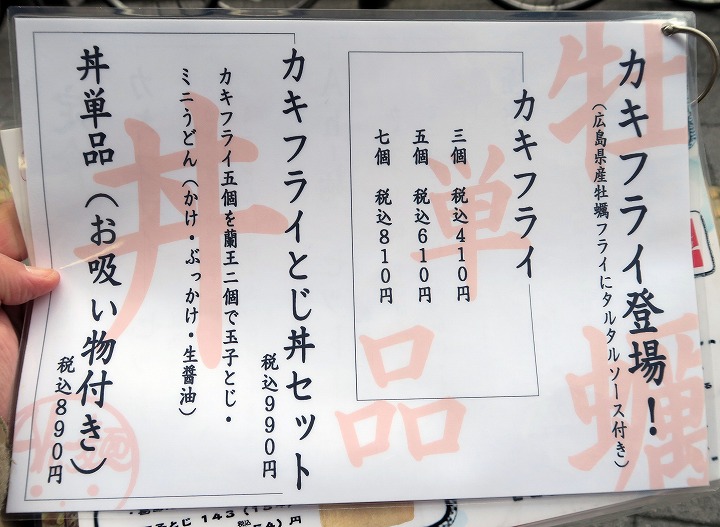 牡蠣
カキフライ登場！
（広島県産牡蠣フライにタルタルソース付き）
単品
カキフライ
三個 税込410円
五個 税込610円
七個 税込810円
丼
カキフライとじ丼セット
税込990円
カキフライ五個を蘭王二個で玉子とじ・
ミニうどん（かけ・ぶっかけ・生醤油）
丼単品（お吸い物付き）
税込890円